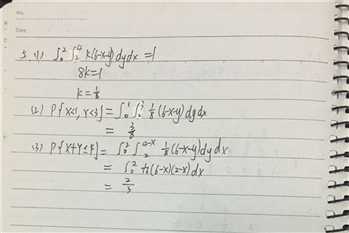 No.
Date
3. (1). ∫₀² ∫₂⁴ k(6-x-y) dy dx = 1
8k=1
k = 1/8
(2) P{X<1, Y<3} = ∫₀¹ ∫₂³ 1/8 (6-x-y) dy dx
= 3/8
(3) P{X+Y≤4} = ∫₀² ∫₂⁴⁻ˣ 1/8 (6-x-y) dy dx
(6-x)(2-x) dx
= 2/3